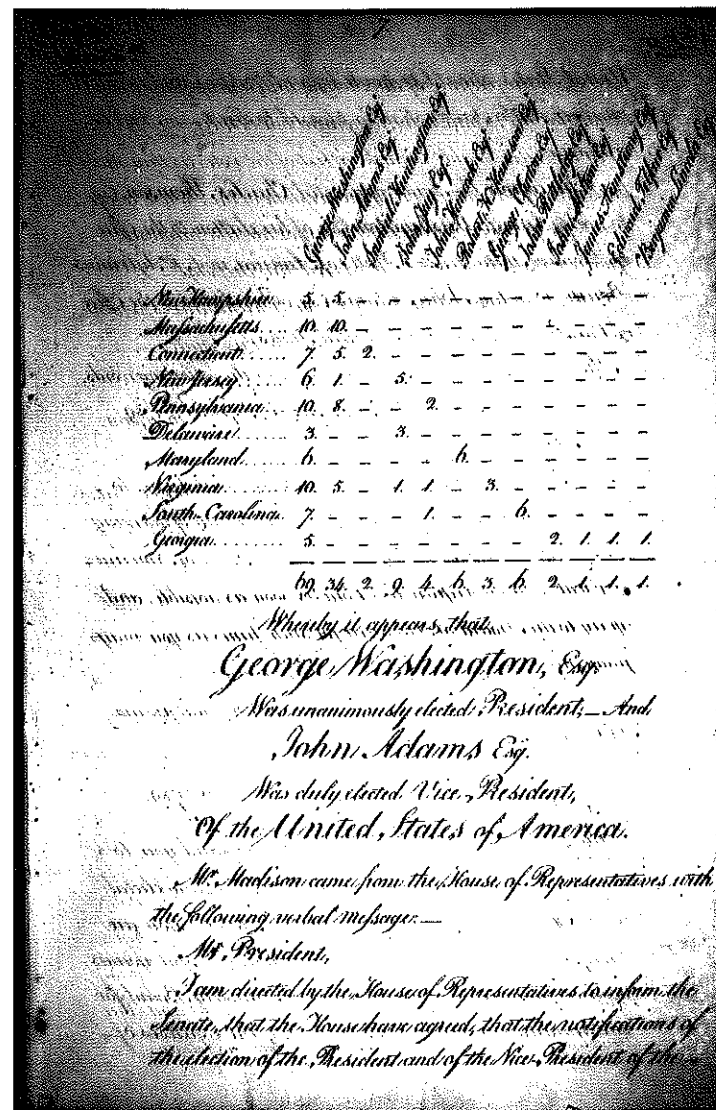 7
George Washington Esqr
John Adams Esqr
Samuel Huntington Esqr
John Jay Esqr
John Hancock Esqr
Robert H. Harrison Esqr
George Clinton Esqr
John Rutledge Esqr
John Milton Esqr
James Armstrong Esqr
Edward Telfair Esqr
Benjamin Lincoln Esqr
New Hampshire 5. 5. - - - - - - - - - -
Massachusetts 10. 10. - - - - - - - - - -
Connecticut 7. 5. 2. - - - - - - - - -
New Jersey 6. 1. - 5. - - - - - - - -
Pennsylvania 10. 8. - - 2. - - - - - - -
Delaware 3. - - 3. - - - - - - - -
Maryland 6. - - - - 6. - - - - - -
Virginia 10. 5. - 1. 1. - 3. - - - - -
South Carolina 7. - - - 1. - - 6. - - - -
Georgia 5. - - - - - - - 2. 1. 1. 1.
69. 34. 2. 9. 4. 6. 3. 6. 2. 1. 1. 1.
Whereby it appears, that
George Washington, Esqr.
Was unanimously elected President,—And
John Adams Esqr.
Was duly elected Vice-President,
Of the United States of America.
Mr. Madison came from the House of Representatives with
the following verbal message:—
Mr. President,
I am directed by the House of Representatives to inform the
Senate, that the House have agreed, that the notifications of
the election of the President and of the Vice-President of the